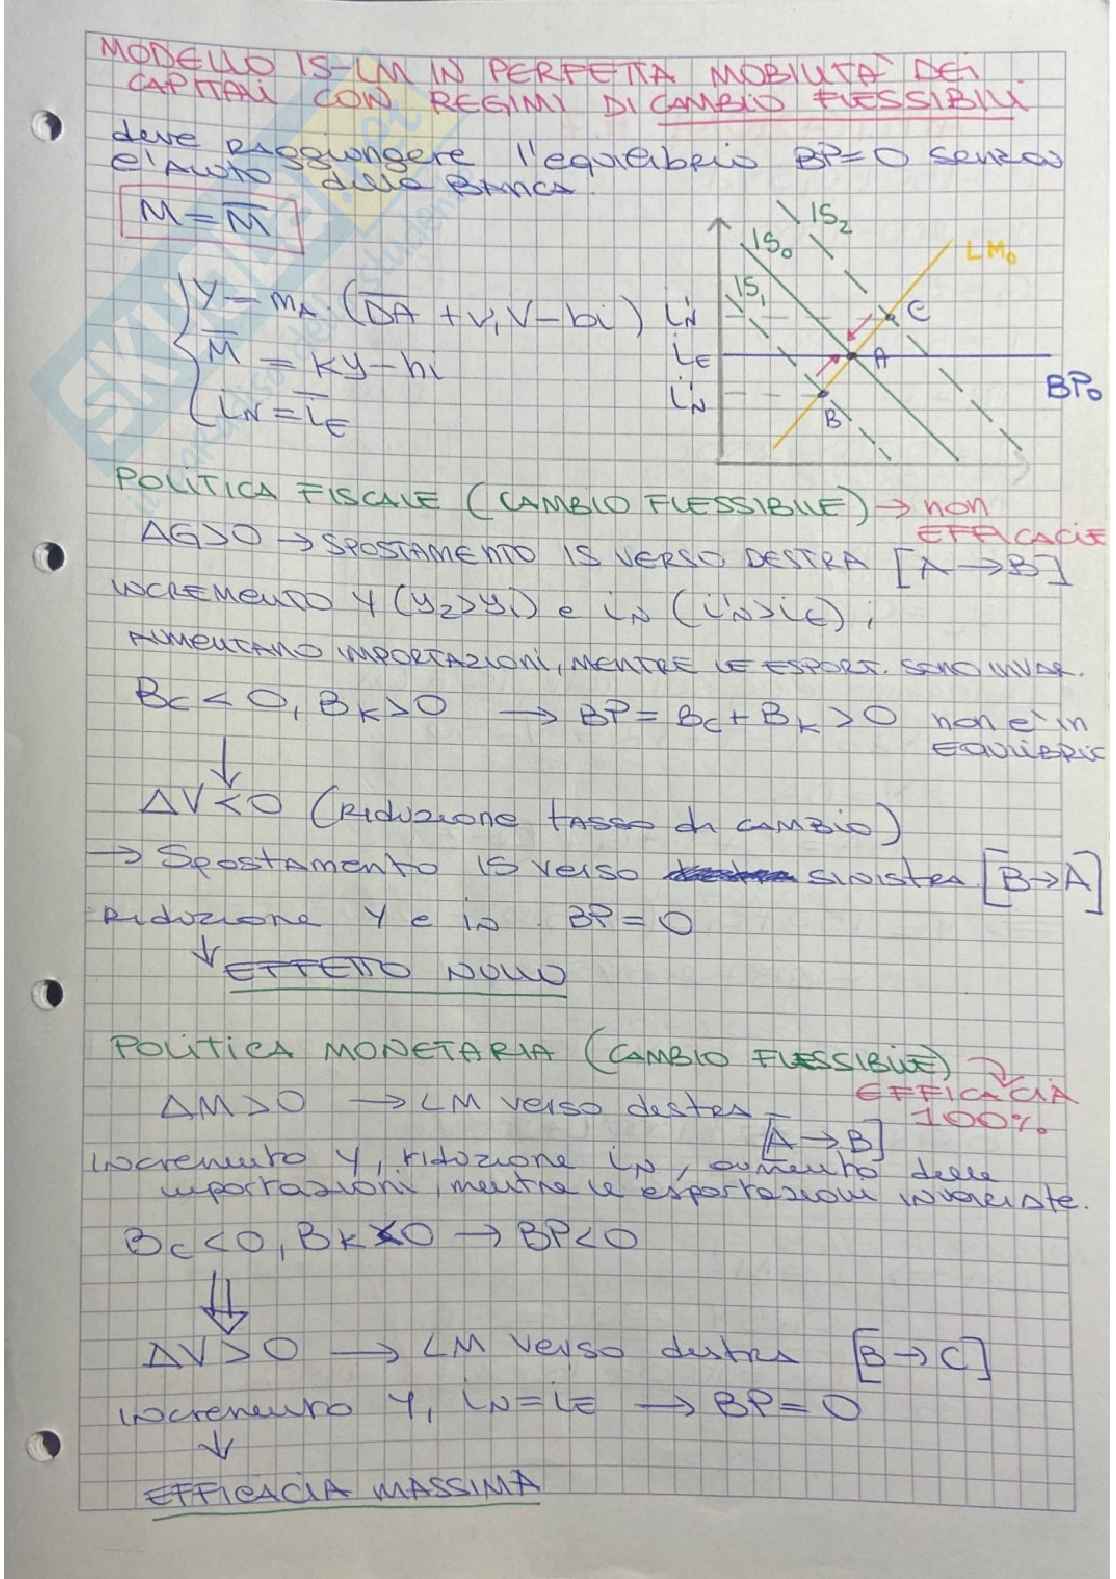 MODELLO IS-LM IN PERFETTA MOBILITA' DEI
CAPITALI CON REGIMI DI CAMBIO FLESSIBILI.
deve raggiungere l'equilibrio BP=0 senza
l'aiuto della Banca.
M = M̅
Y = mA · (D̅A̅ + v₁V - bi)
M̅ = Ky - hi
iN = i̅E
IS2
IS0
IS1
LM0
i'N
C
iE
A
BP0
i'N
B
POLITICA FISCALE (CAMBIO FLESSIBILE) → non
EFFICACIE
ΔG>0 → SPOSTAMENTO IS VERSO DESTRA [A → B]
INCREMENTO Y (y2>y1) e iN (i'N>iE);
AUMENTANO IMPORTAZIONI, MENTRE LE ESPORT. SONO INVAR.
Bc < 0, Bk>0 → BP = Bc + Bk > 0 non e' in
EQUILIBRIO
↓
ΔV < 0 (Riduzione tasso di cambio)
→ Spostamento IS verso sinistra [B→A]
Riduzione Y e iN . BP = 0
↓ EFFETTO NULLO
POLITICA MONETARIA (CAMBIO FLESSIBILE) →
EFFICACIA
100%
ΔM > 0 → LM verso destra -
[A → B]
Incremento Y, riduzione iN, aumento delle
importazioni, mentre le esportazioni invariate.
Bc<0, Bk<0 → BP<0
⇓
ΔV > 0 → LM verso destra [B → C]
incremento Y, iN = iE → BP = 0
↓
EFFICACIA MASSIMA